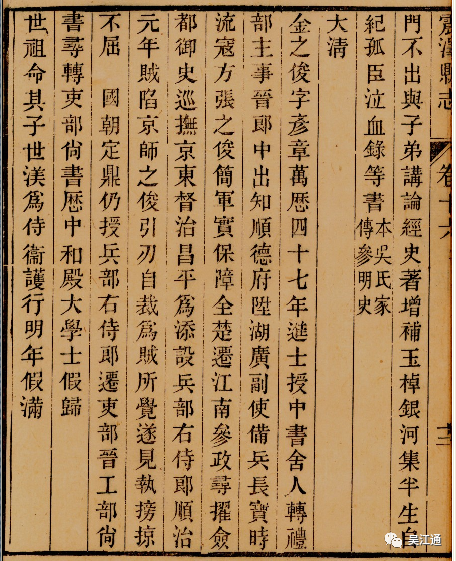 震澤縣志
卷十六
十二
門不出與子弟講論經史著增補玉棹銀河集半生自
紀孤臣泣血錄等書本吳氏家
傳參明史
大清
金之俊字彥章萬曆四十七年進士授中書舍人轉禮
部主事晉郎中出知順德府陞湖廣副使備兵長寶時
流寇方張之俊簡軍實保障全楚遷江南參政尋擢僉
都御史巡撫京東督治昌平爲添設兵部右侍郎順治
元年賊陷京師之俊引刃自裁爲賊所覺遂見執搒掠
不屈　國朝定鼎仍授兵部右侍郎遷吏部晉工部尙
書尋轉吏部尙書歷中和殿大學士假歸
世祖命其子世渼爲侍衞護行明年假滿
吴江通